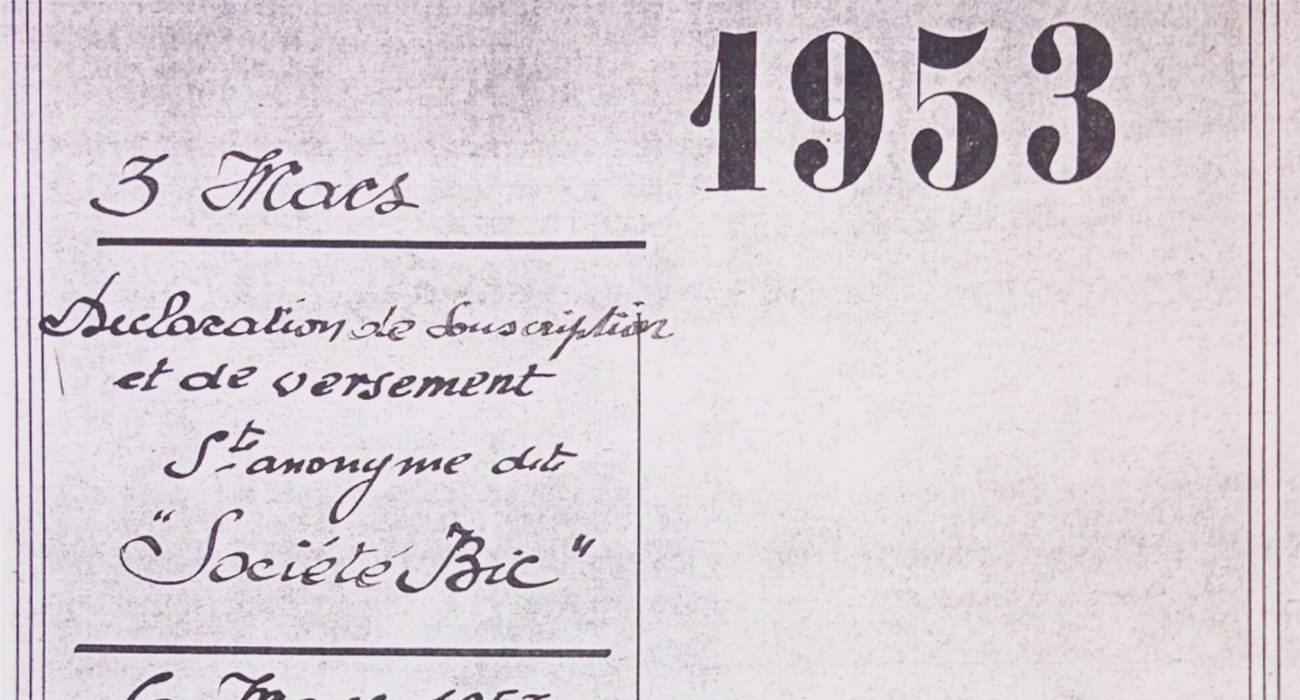 1953
3 Mars
Déclaration de Souscription
et de versement
Sté anonyme dite
"Société Bic"
Mars 1953